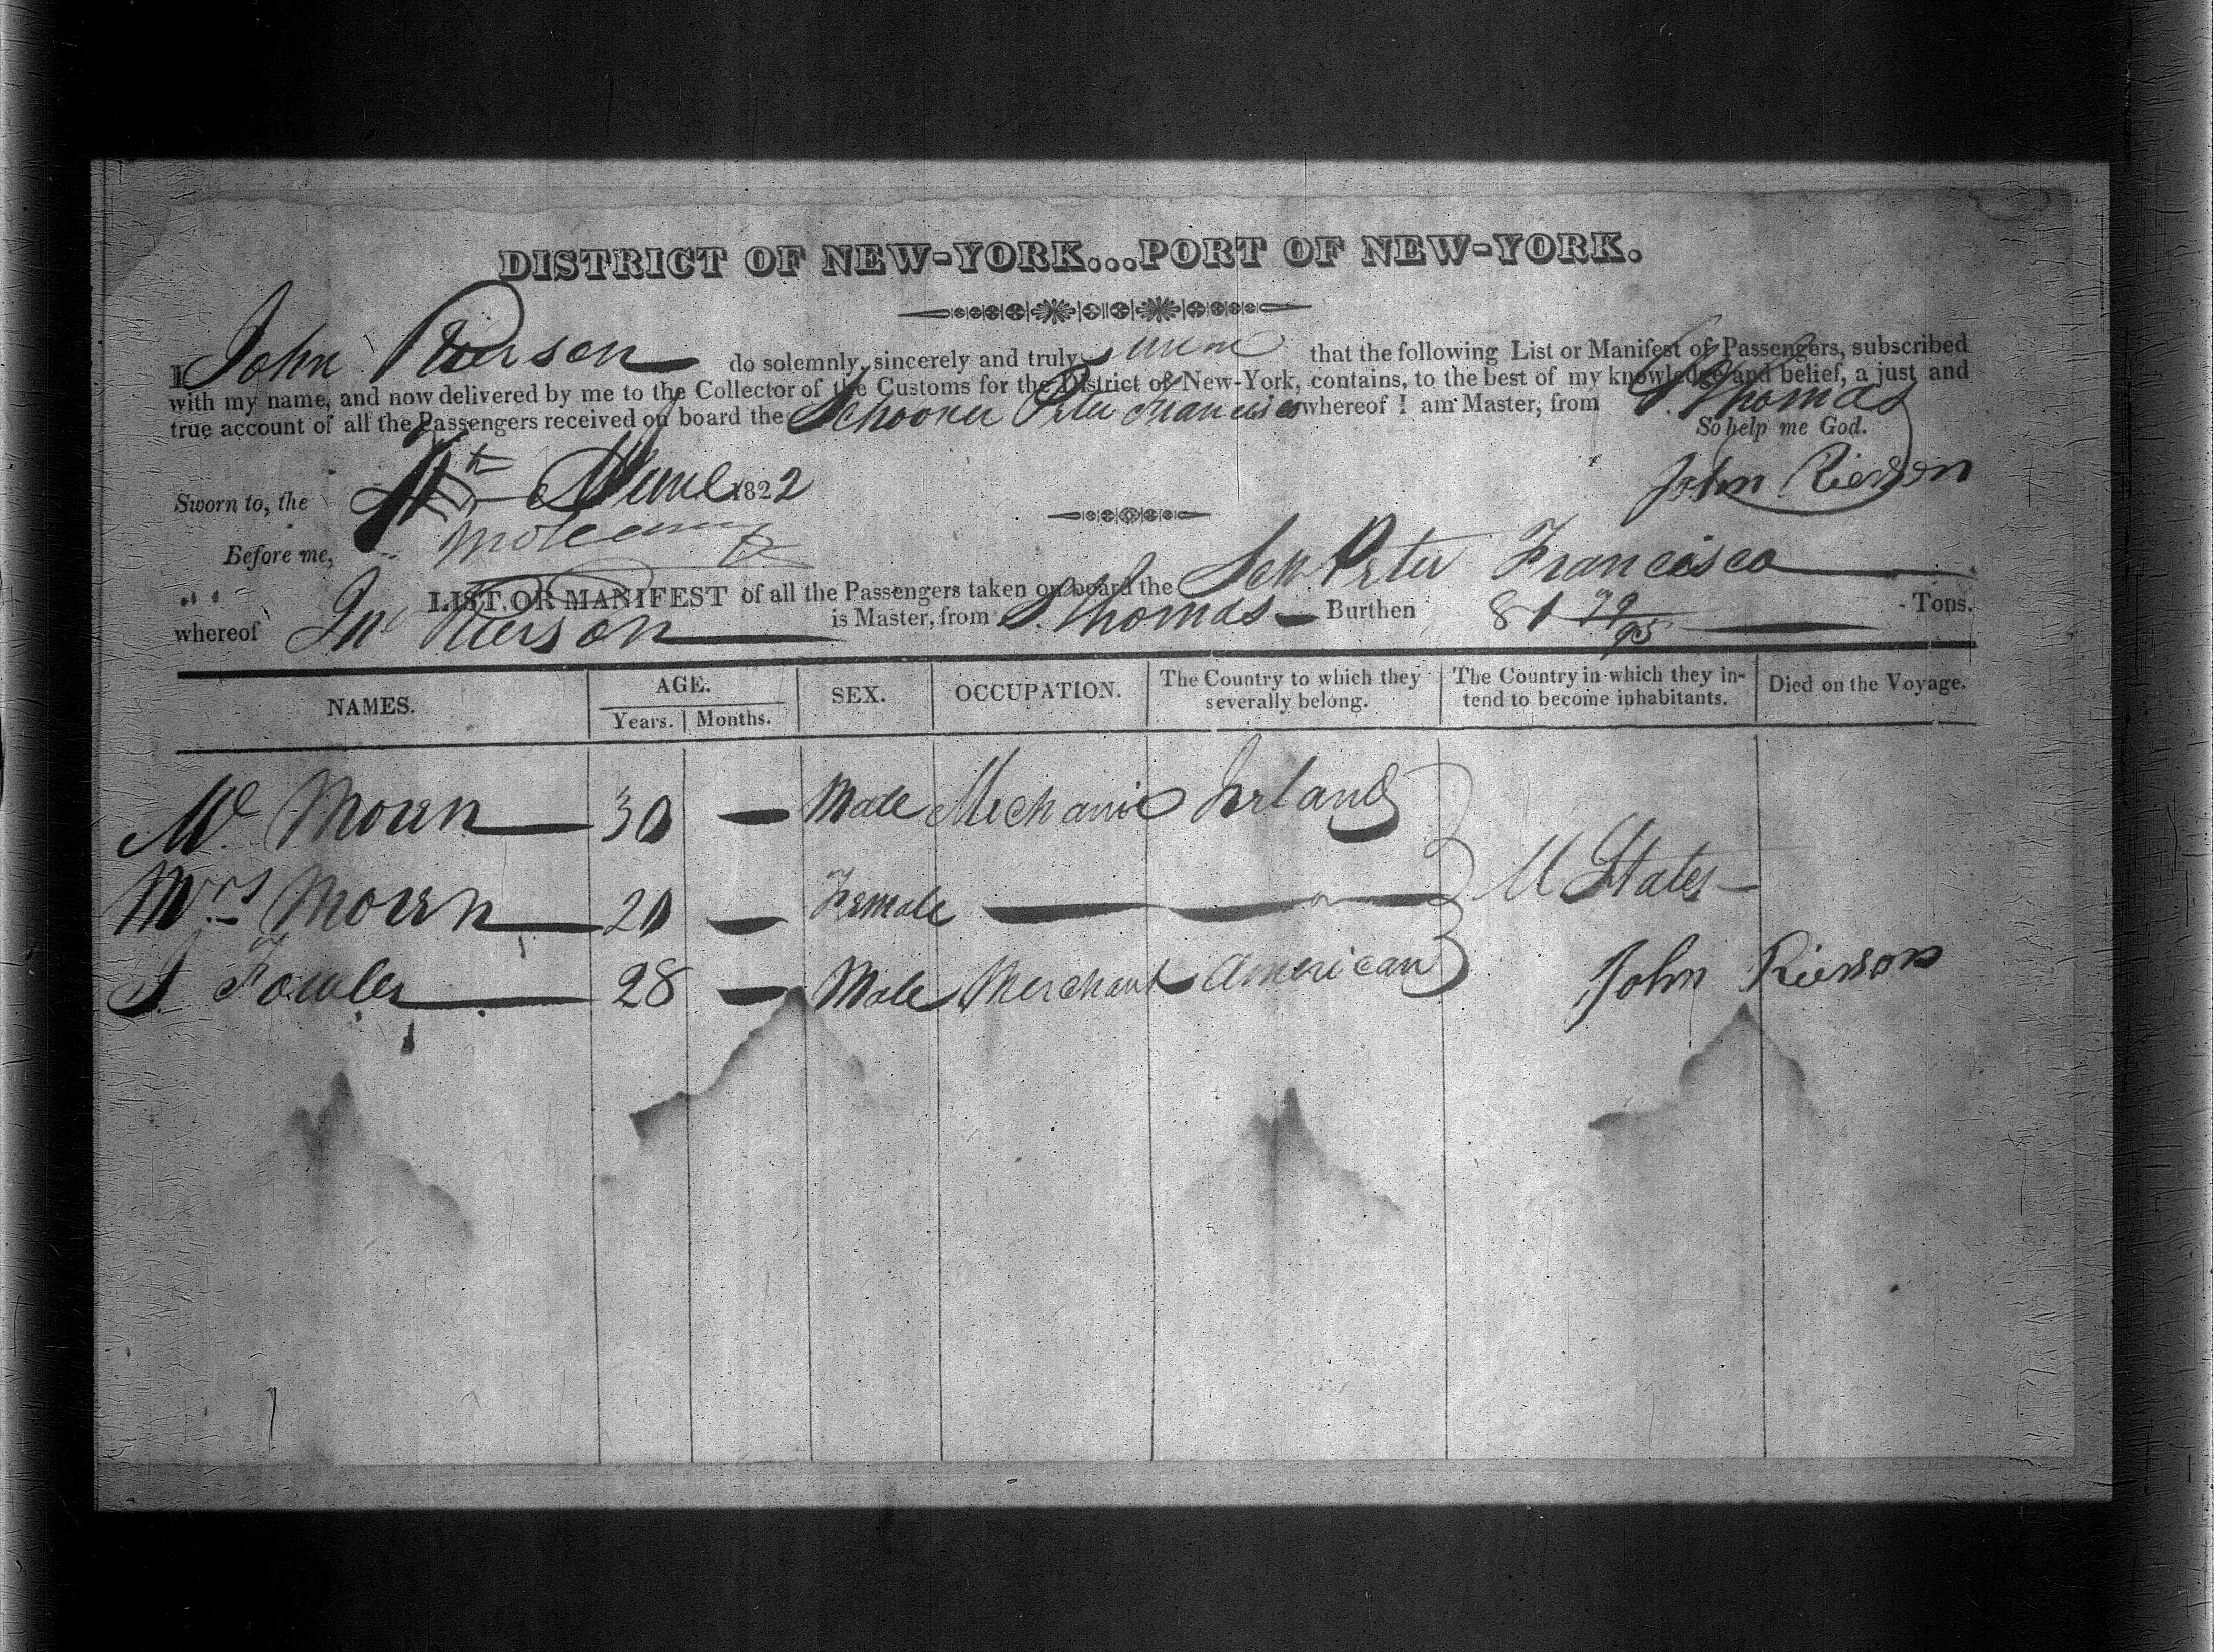 DISTRICT OF NEW-YORK...PORT OF NEW-YORK.
I John Rierson do solemnly, sincerely and truly that the following List or Manifest of Passengers, subscribed
with my name, and now delivered by me to the Collector of the Customs for the District of New-York, contains, to the best of my knowledge and belief, a just and
true account of all the Passengers received on board the Schooner Peter Francisco whereof I am Master, from St Thomas
So help me God.
Sworn to, the June 1822
John Rierson
Before me,
LIST, OR MANIFEST of all the Passengers taken on board the Sch Peter Francisco
whereof Jno Rierson is Master, from St Thomas Burthen 81 79/95 - Tons.
NAMES. AGE. Years. Months. SEX. OCCUPATION. The Country to which they severally belong. The Country in which they intend to become inhabitants. Died on the Voyage.
Mr 30 — Male Mechanic Irland
Mrs 20 — Female U States
J Fowler 28 — Male Merchant American
John Rierson